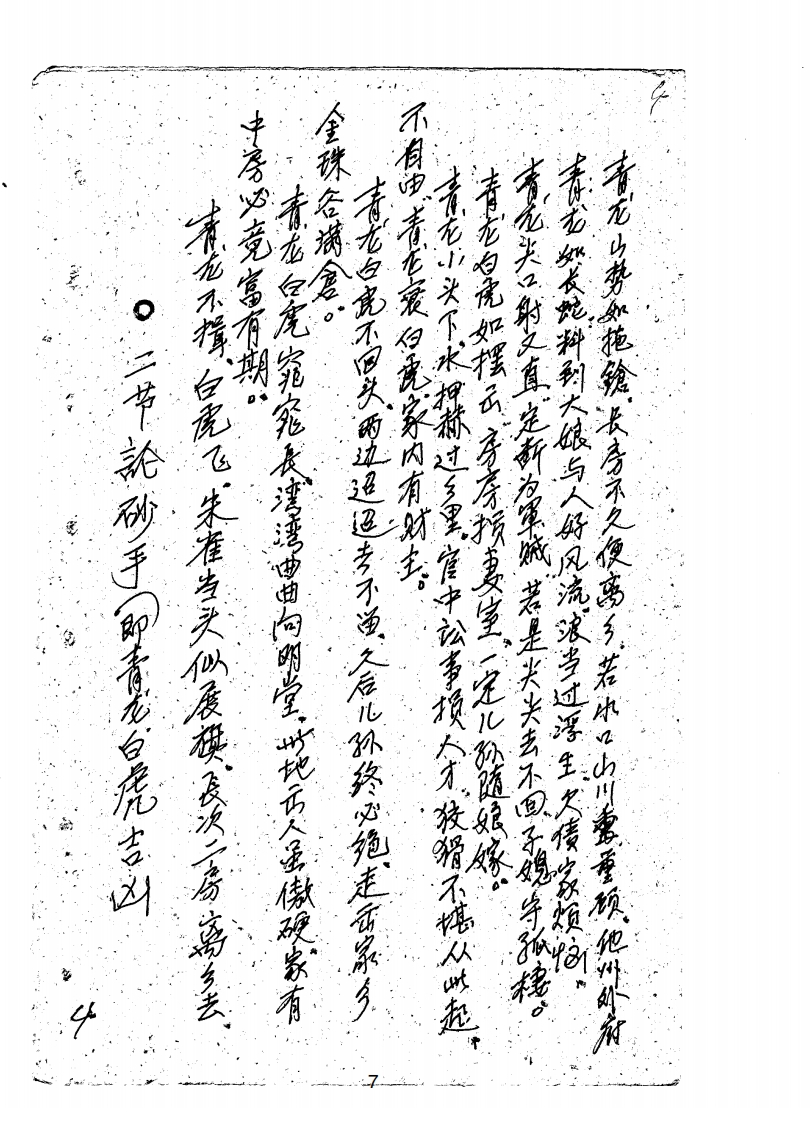 4
二节論砂手(即青龙白虎吉凶
青龙不揖、白虎飞。朱雀当头似展旗。長次二房离乡去、
中房必竟富有期。
青龙白虎窕窕長、湾湾曲曲向明堂。此地出人虽傲硬、家有
金珠谷满倉。
青龙白虎不回头、两边迢迢去不留。久后儿孙终必绝、走出家乡
不自由。青龙衮白虎、家内有财主。
青龙小头下水、押赫过乡里。官中訟事損人才、狡猾不堪从此起。
青龙白虎如摆出、房房損妻室。一定儿孙随娘嫁。
青龙尖口射又直、定断为軍贼。若是尖尖去不回、子媳守孤棲。
青龙如长蛇、料到大娘与人好风流。浪当过浮生、欠债家烦恼。
青龙山势如拖鎗、長房不久便离乡。若水口山川重重顾、他州外府
4
7